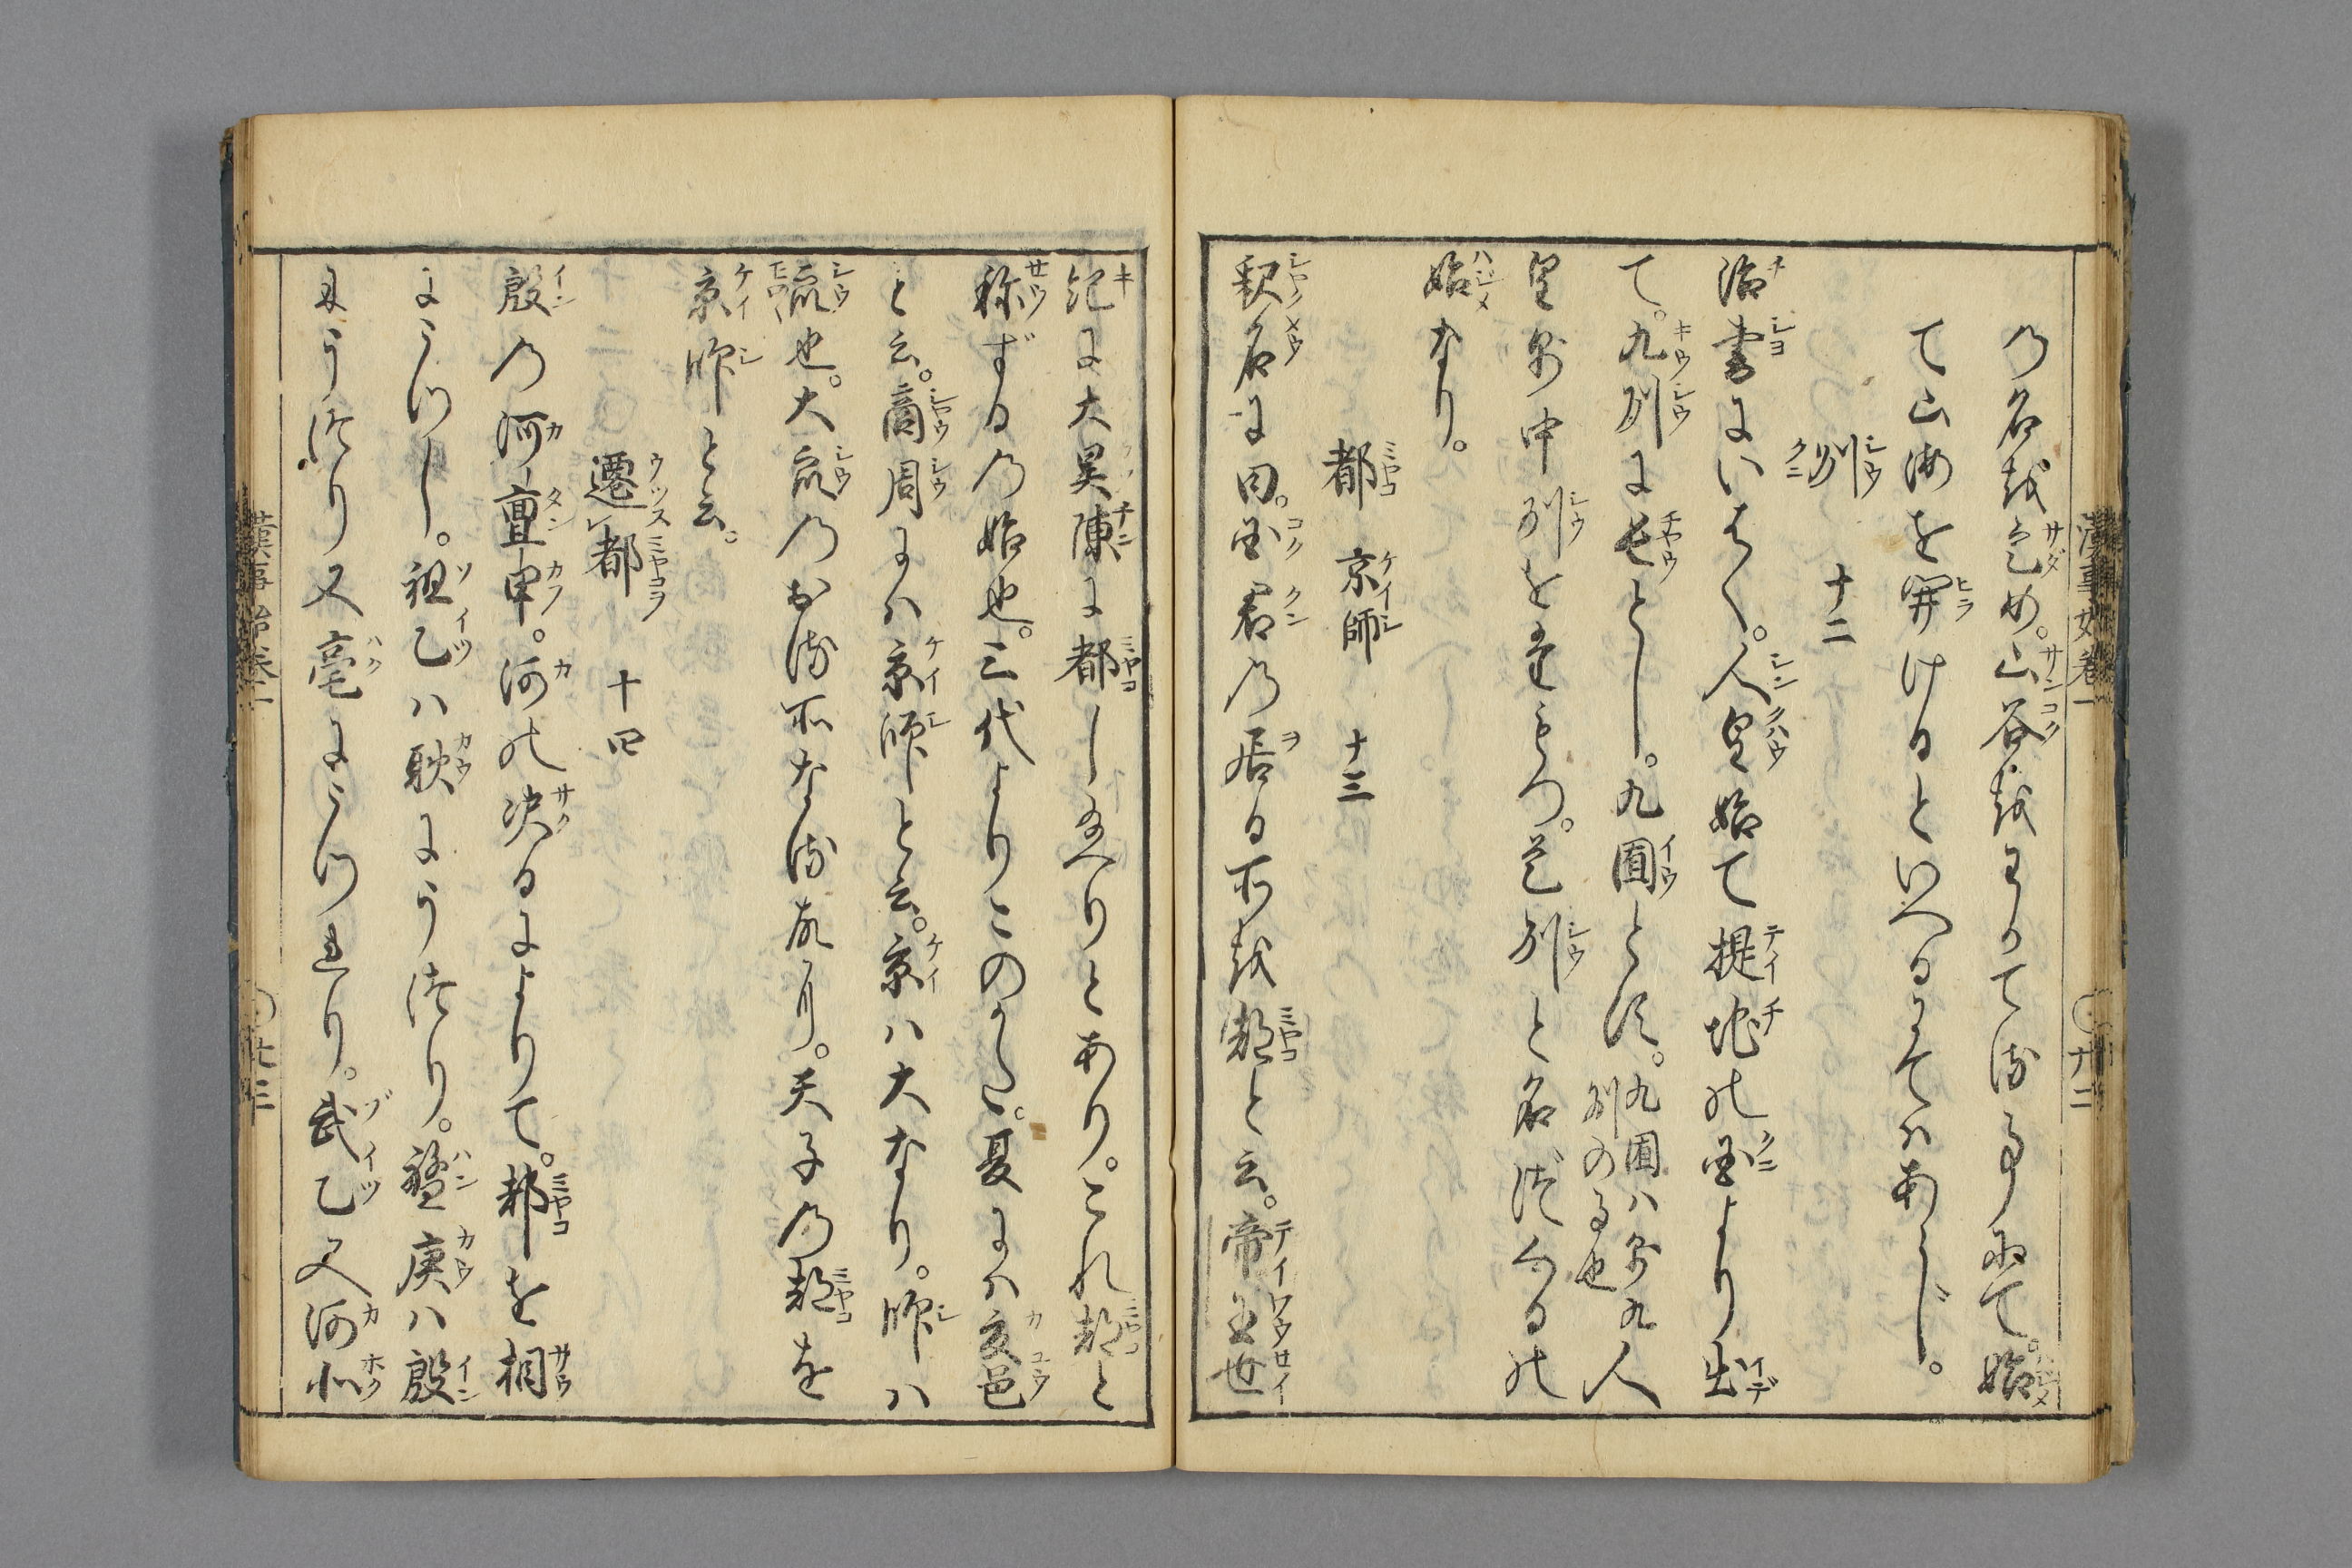 の名を定め。山谷をわかてる事にて。始
て山海を開けるといへるにてはあらじ。
州 十二
洛書にいはく。人皇始て提地の国より出
て。九州に長とし。九囿とす。九囿ハ即九人州の長也
皇即中州を
始なり。
都 京師 十三
釈名に曰。国君の居る所を都と云。帝王世
紀に大昊陳に都し給へりとあり。これ都と
称ずるの始也。三代よりこのかた。夏にハ夏邑
と云。商周にハ京師と云。京ハ大なり。師ハ
衆也。大衆のおる所なる故なり。天子の都を
京師と云。
遷都 十四
殷の河亶甲。河の決るによりて。都を相
にうつし。祖乙ハ耿にうつり。盤庚ハ殷
にうつり又亳にうつれり。武乙又河北
漢事始巻一
十二
漢事始巻一
十三